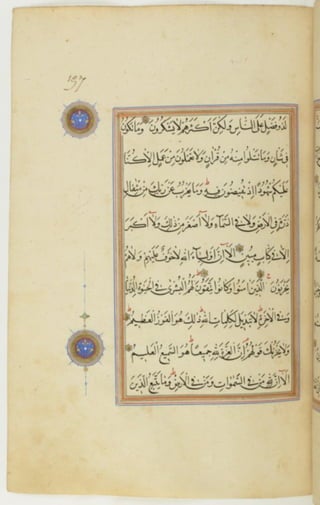 لَذُو فَضْلٍ عَلَى النَّاسِ وَلٰكِنَّ اَكْثَرَهُمْ لَا يَشْكُرُونَ وَمَا تَكُونُ
فِى شَأْنٍ وَمَا تَتْلُوا مِنْهُ مِنْ قُرْاٰنٍ وَلَا تَعْمَلُونَ مِنْ عَمَلٍ اِلَّا كُنَّا
عَلَيْكُمْ شُهُودًا اِذْ تُفِيضُونَ فِيهِ وَمَا يَعْزُبُ عَنْ رَبِّكَ مِنْ مِثْقَالِ
ذَرَّةٍ فِى الْاَرْضِ وَلَا فِى السَّمَاءِ وَلَا اَصْغَرَ مِنْ ذٰلِكَ وَلَا اَكْبَرَ
اِلَّا فِى كِتَابٍ مُبِينٍ اَلَا اِنَّ اَوْلِيَاءَ اللّٰهِ لَا خَوْفٌ عَلَيْهِمْ وَلَا هُمْ
يَحْزَنُونَ اَلَّذِينَ اٰمَنُوا وَكَانُوا يَتَّقُونَ لَهُمُ الْبُشْرٰى فِى الْحَيٰوةِ الدُّنْيَا
وَفِى الْاٰخِرَةِ لَا تَبْدِيلَ لِكَلِمَاتِ اللّٰهِ ذٰلِكَ هُوَ الْفَوْزُ الْعَظِيمُ
وَلَا يَحْزُنْكَ قَوْلُهُمْ اِنَّ الْعِزَّةَ لِلّٰهِ جَمِيعًا هُوَ السَّمِيعُ الْعَلِيمُ
اَلَا اِنَّ لِلّٰهِ مَنْ فِى السَّمٰوَاتِ وَمَنْ فِى الْاَرْضِ وَمَا يَتَّبِعُ الَّذِينَ